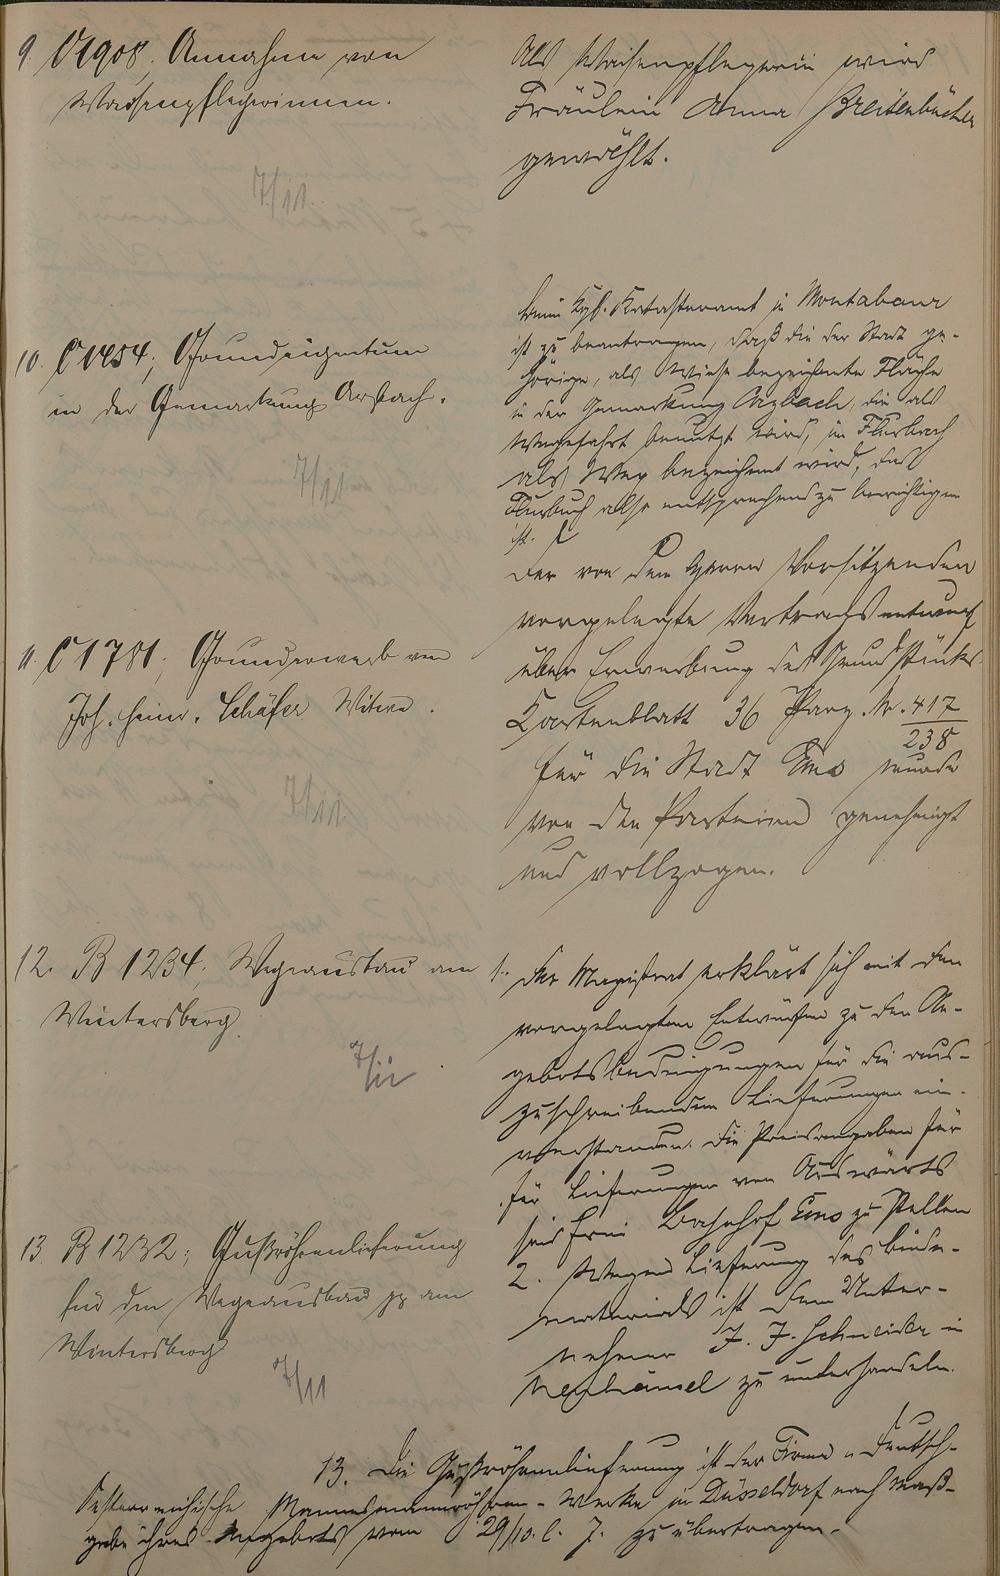 9. C 1908, Annahme von
Waisenpflegerinnen.
7/11.
Als Waisenpflegerin wird
Fräulein Anna Breitenbücher
gewählt.
10. C 1454, Grundeigentum
in der Gemarkung Arzbach.
7/11
beim Kgl. Katasteramt in Montabaur
ist zu beantragen, daß die der Stadt ge-
hörige, als Wiese bezeichnete Fläche
in der Gemarkung Arzbach, die als
Wegefahrt benutzt wird, im Flurbuch
als Weg bezeichnet wird, das
Flurbuch also entsprechend zu berichtigen
ist.
11. C 1781, Grunderwerb von
Joh. Heinr. Schäfer Witwe.
7/11.
Der von dem Herrn Vorsitzenden
vorgelegte Vertragsentwurf
über Erwerbung des Grundstücks
Kartenblatt 36 Parz. Nr. 417/238
für die Stadt Ems wurde
von den Parteien genehmigt
und vollzogen.
12. B 1234, Wegeausbau am
Wintersberg.
7/11
1. Der Magistrat erklärt sich mit den
vorgelegten Entwürfen zu den An-
gebotsbedingungen für die aus-
zuschreibenden Lieferungen ein-
verstanden. Die Preisangaben für
für Lieferungen von Auswärts
sind frei Bahnhof Ems zu stellen
2. Wegen Lieferung des Binde-
materials ist dem Unter-
nehmer J. J. Schneider in
zu unterhandeln.
13. B 1232; Gußröhrenlieferung
für den Wegeausbau pp am
Wintersberg
7/11
13. Die Gußröhrenlieferung ist der Firma „Deutsch-
Oesterreichische Mannesmannröhren-Werke in Düsseldorf nach Maß-
gabe ihres Angebots vom 29/10. l. J. zu übertragen.